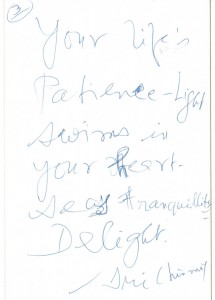 2
Your life's
Patience-Light
Swims in
your heart-
sea's tranquillity-
Delight.
— Sri Chinmoy